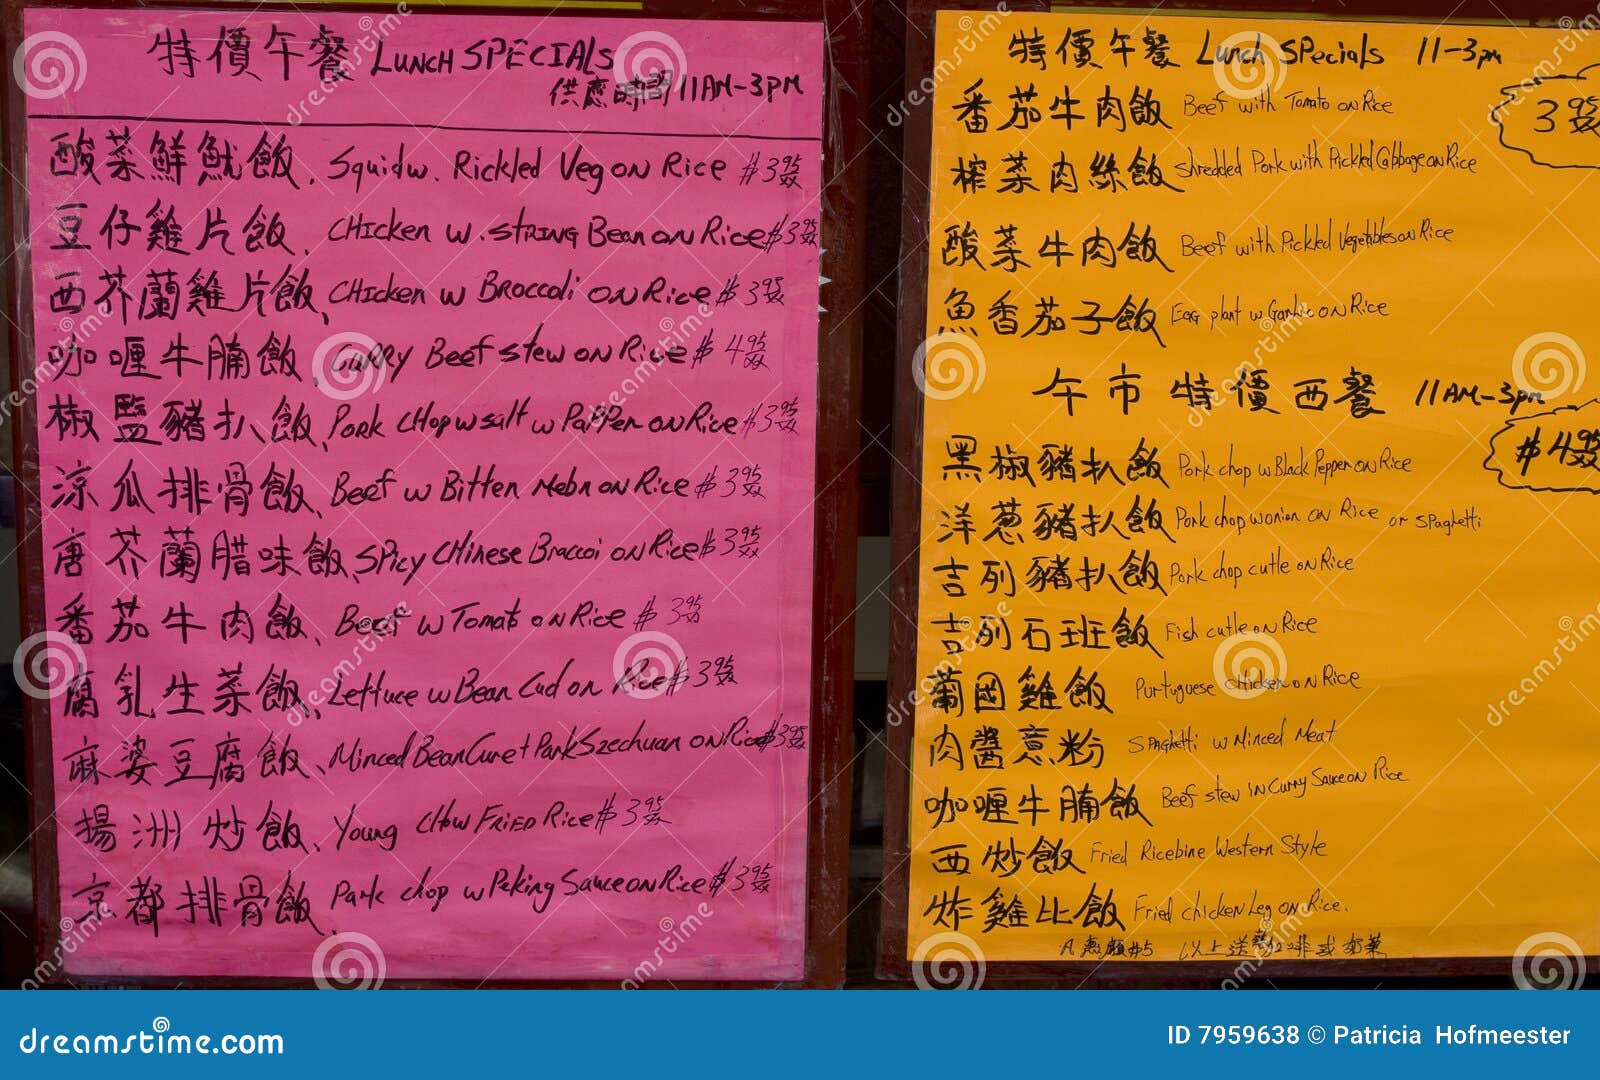 特價午餐 LUNCH SPECIALS
供應時間 11AM-3PM
酸菜鮮魷飯. Squid w. Rickled Veg on Rice $3.95
豆仔雞片飯. CHicken w. STRING Bean on Rice $3.95
西芥蘭雞片飯, CHicken w Broccoli on Rice $3.95
咖喱牛腩飯, CuRRy Beef stew on Rice $4.95
椒盬豬扒飯, Pork Chop w salt w PaPPer on Rice $3.95
涼瓜排骨飯, Beef w Bitten Mebn on Rice $3.95
唐芥蘭腊味飯, SPicy CHinese Braccoi on Rice $3.95
番茄牛肉飯, Beef w Tomato on Rice $3.95
腐乳生菜飯, Lettuce w Bean Cud on Rice $3.95
麻婆豆腐飯, Minced Bean Curet Park Szechuan on Rice $3.95
揚洲炒飯, Young CHow FRIED Rice $3.95
京都排骨飯, Park chop w Peking Sauce on Rice $3.95
特價午餐 Lunch SPecials 11-3pm
番茄牛肉飯 Beef with Tomato on Rice 3.95
榨菜肉絲飯 Shredded Pork with Pickled Cabbage on Rice
酸菜牛肉飯 Beef with Pickled Vegetables on Rice
魚香茄子飯 Egg plant w Garlic on Rice
午市特價西餐 11AM-3pm
黑椒豬扒飯 Pork chop w Black Pepper on Rice $4.95
洋葱豬扒飯 Pork chop w onion on Rice or SPaghetti
吉列豬扒飯 Pork chop cutle on Rice
吉列石班飯 Fish cutle on Rice
葡國雞飯 Purtuguese chicken on Rice
肉醬意粉 SPAGHetti w Minced Meat
咖喱牛腩飯 Beef stew in Curry Sauce on Rice
西炒飯 Fried Ricebine Western Style
炸雞比飯 Fried chicken Leg on Rice.
凡惠顧#5 以上送熱咖啡或奶茶
dreamstime.com
ID 7959638 © Patricia Hofmeester